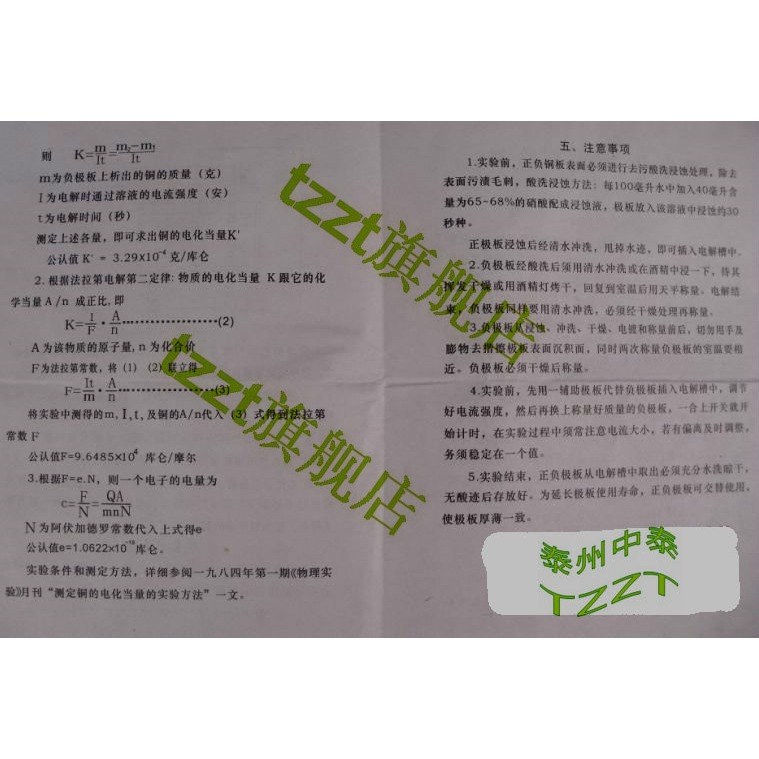 则 K=m/It=m₂-m₁/It
m为负极板上析出的铜的质量（克）
I为电解时通过溶液的电流强度（安）
t为电解时间（秒）
测定上述各量，即可求出铜的电化当量K'
公认值K' = 3.29X10⁻⁴ 克/库仑
2.根据法拉第电解第二定律: 物质的电化当量 K 跟它的化
学当量 A/n 成正比,即
K=1/F·A/n··················(2)
A为该物质的原子量,n为化合价
F为法拉第常数，将（1）（2）联立得
F=It/m·A/n··················(3)
将实验中测得的m,I,t,及铜的A/n代入（3）式得到法拉第
常数 F
公认值F=9.6485×10⁴ 库仑/摩尔
3.根据F=e.N，则一个电子的电量为
c=F/N=QA/mnN
N为阿伏加德罗常数代入上式得e
公认值e=1.0622×10⁻¹⁹库仑。
实验条件和测定方法，详细参阅一九八四年第一期《物理实
验》月刊“测定铜的电化当量的实验方法”一文。
五、注意事项
1.实验前，正负铜板表面必须进行去污酸洗浸蚀处理，除去
表面污渍毛刺，酸洗浸蚀方法：每100毫升水中加入40毫升含
量为65-68%的硝酸配成浸蚀液，极板放入该溶液中浸蚀约30
秒种。
正极板浸蚀后经清水冲洗，甩掉水迹，即可插入电解槽中。
2.负极板经酸洗后须用清水冲洗或在酒精中浸一下，待其
挥发干燥或用酒精灯烤干，回复到室温后用天平称量。电解结
束，负极板同样要用清水冲洗，必须经干燥处理再称量。
3.负极板从浸蚀、冲洗、干燥、电镀和称量前后，切勿用手及
膨物去揩擦极板表面沉积面，同时两次称量负极板的室温要相
近。负极板必须干燥后称量。
4.实验前，先用一辅助极板代替负极板插入电解槽中，调节
好电流强度，然后再换上称量好质量的负极板，一合上开关就开
始计时，在实验过程中须常注意电流大小，若有偏离及时调整，
务须稳定在一个值。
5.实验结束，正负极板从电解槽中取出必须充分水洗晾干，
无酸迹后存放好。为延长极板使用寿命，正负极板可交替使用，
使极板厚薄一致。
tzzt旗舰店
tzzt旗舰店
泰州中泰
TZZT